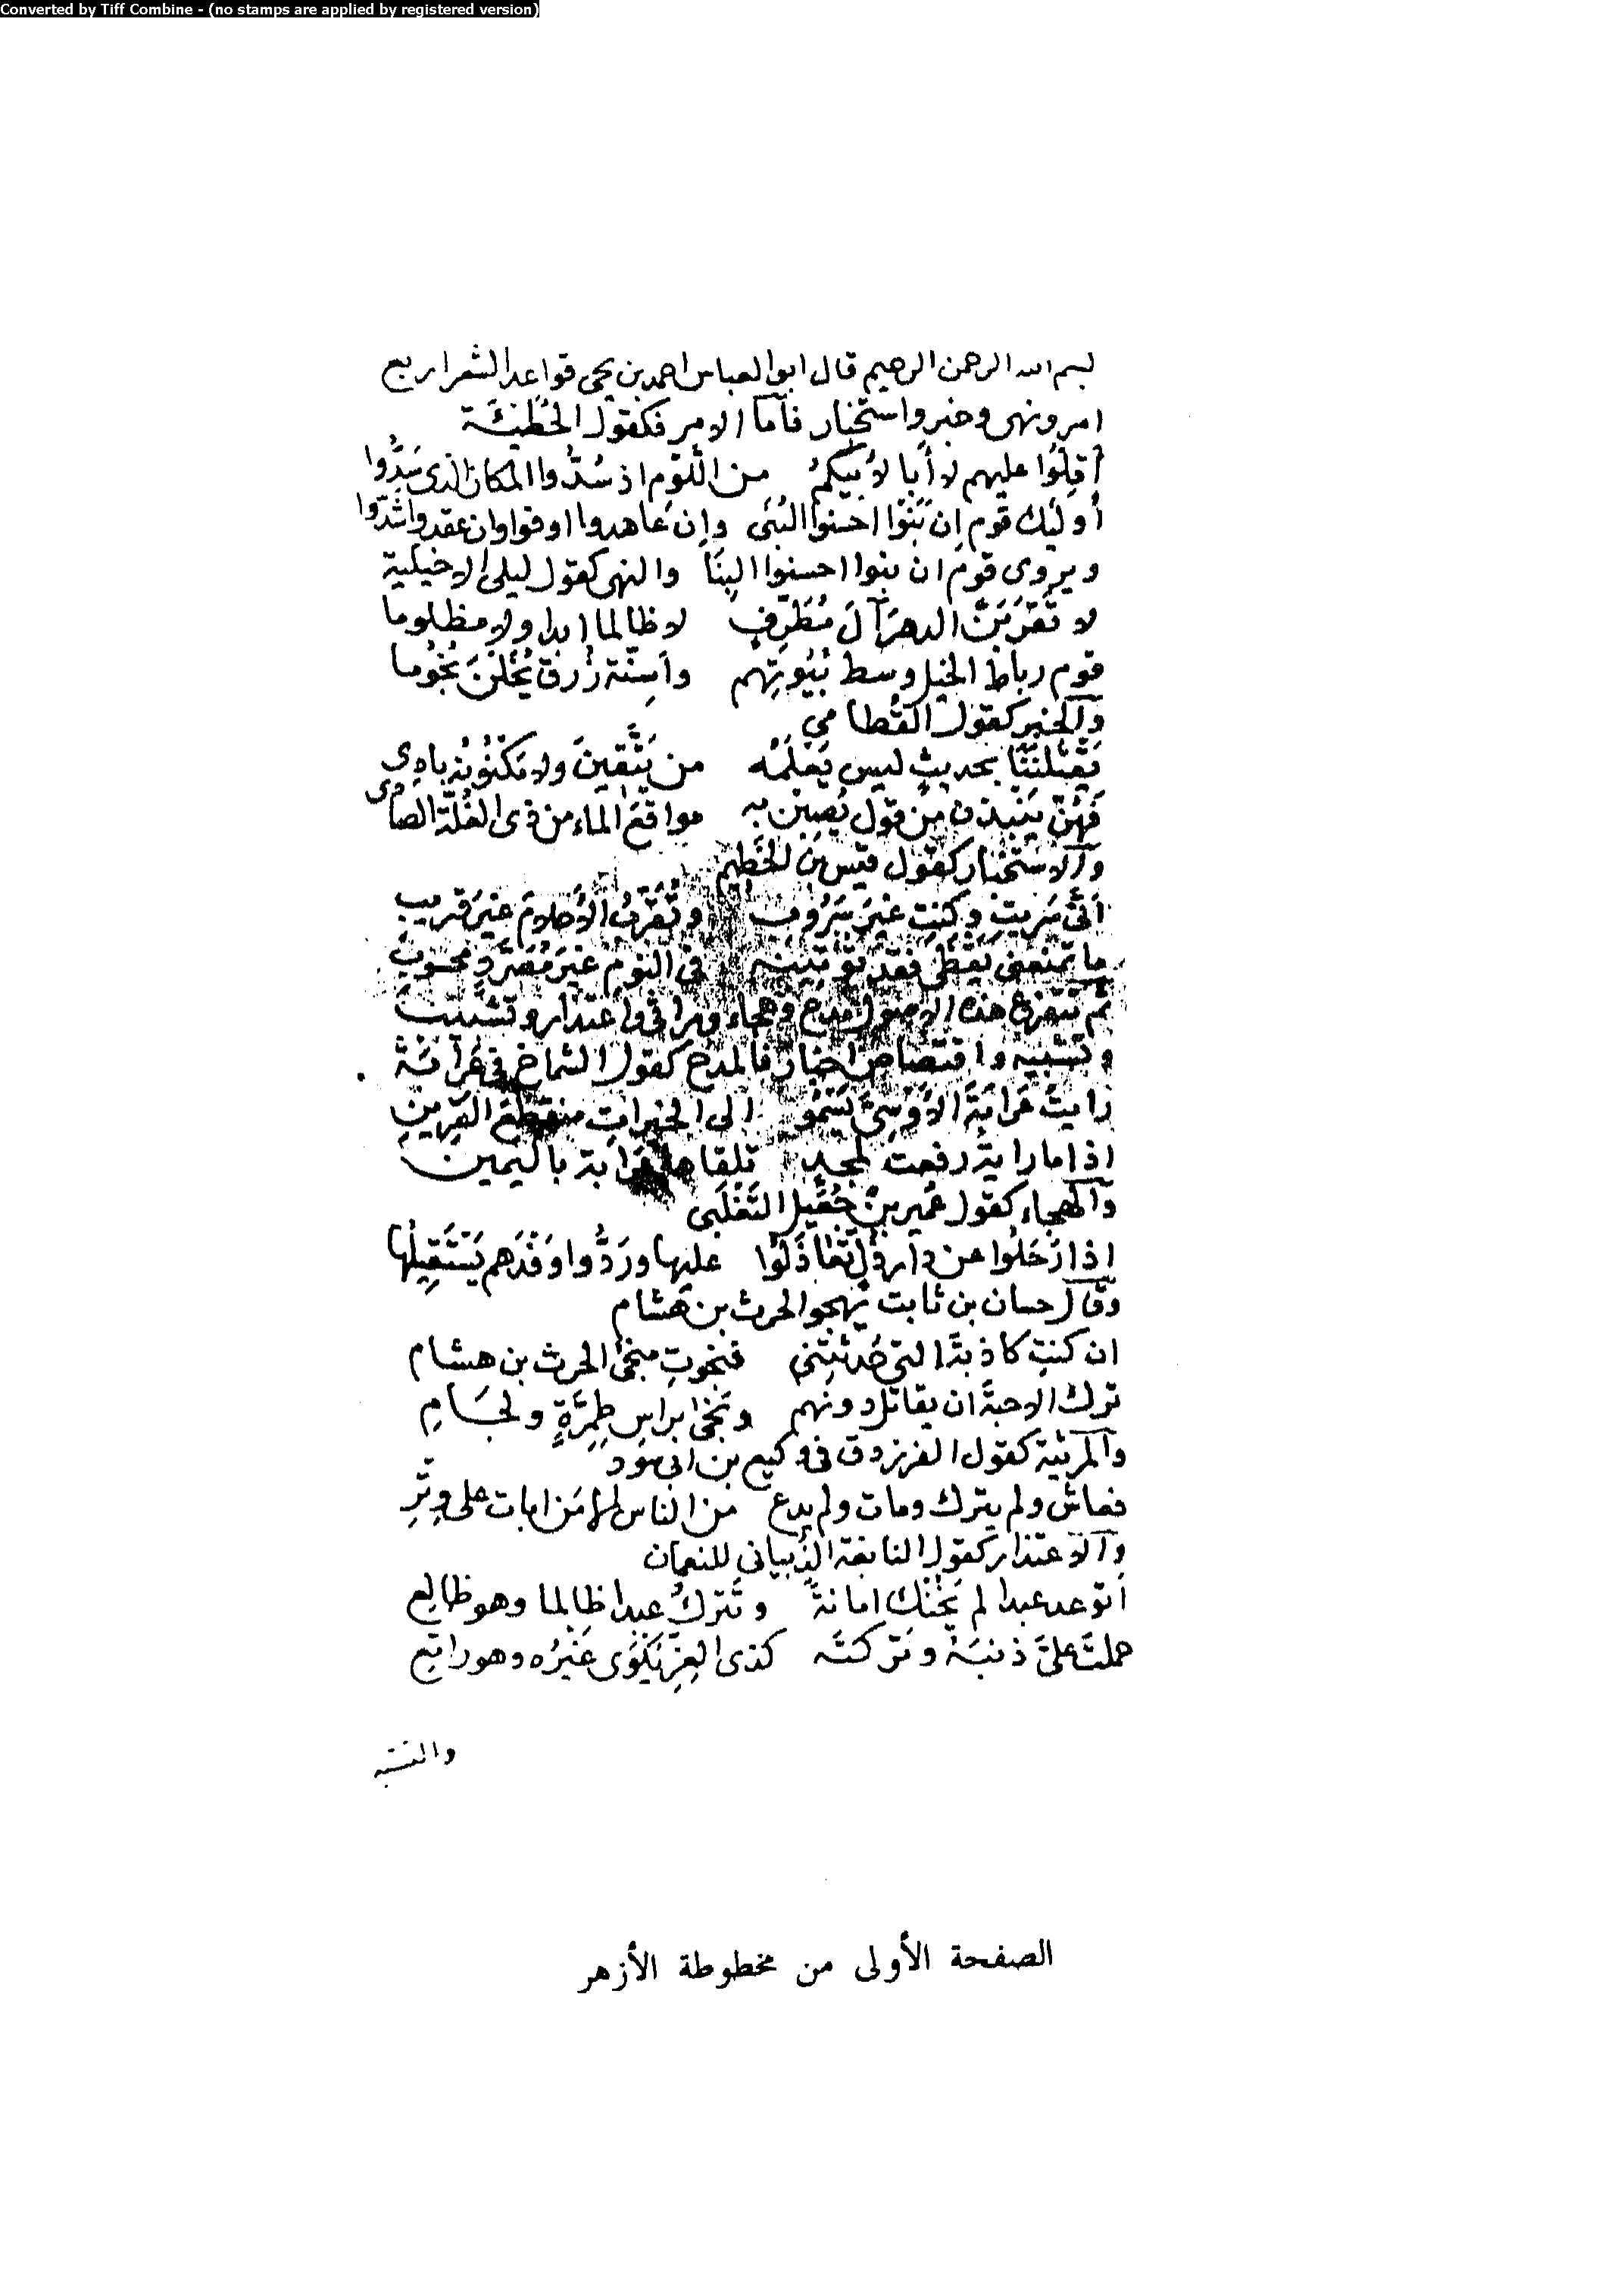 Converted by Tiff Combine - (no stamps are applied by registered version)
بسم الله الرحمن الرحيم قال ابو العباس احمد بن يحيى قواعد الشعر اربع
امر ونهى وخبر واستخبار فاما الامر فكقول الحُطَيْئَة
أقِلّوا عليهم لا أبا لأبيكمُ من اللّوْمِ اذ سُدُّوا المكان الذى سَدُّوا
أوليك قوم إن بَنَوْا احسنوا البُنَى وإن عَاهدوا اوفوا وان عقدوا شَدّوا
ويروى قوم ان بنوا احسنوا البِنَا والنهى كقول ليلى الاخيلية
لا تَقْرَبَنَّ الدهرَ آلَ مُطَرِّفٍ لا ظالما ابدا ولا مظلوما
قوم رباط الخيل وسط بُيُوتِهم وأسِنّة زُرق يُخَلْنَ نُجُوما
والخبر كقول القُطامي
يَقْتُلْنَنَا بحديثٍ ليس يَعْلَمُه من يَتَّقِينَ ولا مَكْنُونُه بادِى
فَهُنّ يَنْبِذن من قول يُصِبْن به مواقعَ الماء من ذى الغُلّة الصادى
والاستخبار كقول قيس بن الخَطِيم
أنَّى سَرَيتِ وكنتِ غيرَ سَرُوبِ وتُقَرِّبُ الأحلامُ غيرَ قريب
ما تمنعى يَقْظَى فقد تؤتينه فى النوم غيرَ مُصَرَّدٍ محسوبِ
ثم تتفرع هذه الاصول مدح وهجاء ومراثى واعتذار وتشبيب
وتشبيه واقتصاص اخبار فالمدح كقول الشماخ فى عَرَابَةَ
رايتُ عَرَابَةَ الأوْسِىَّ يَسْمُو الى الخيرات منقطعَ القرينِ
اذا ما راية رفعت لمجدٍ تلقاها عَرَابة باليمين
والهجاء كقول عُمير بنِ جُعَيْل التَّغْلَبى
اذا رَحَلُوا عن دار ذُلٍّ تَعَاذَلُوا عليها ورَدُّوا وَفْدَهم يَسْتَقِيلُها
وقال حسان بن ثابت يهجو الحرث بن هشام
ان كنتِ كاذبةَ التى حَدثتِنى فنجوتِ منجى الحرث بن هشام
ترك الاحبةَ ان يقاتل دونهم ونجَى براس طِمِرَّةٍ ولجَامِ
والمرثية كقول الفرزدق فى وكيع بن ابى سُود
فعاش ولم يترك ومات ولم يدع من الناس إلا مَن ابات على وِتْرِ
والاعتذار كقول النابغة الذبيانى للنعمان
أتوعد عبدا لم يَخُنْك امانةً وتَتركُ عبدا ظالما وهو ظالع
حملتَ علىَّ ذنبَهُ وتركتَه كذى العِزِّ يُكْوَى غَيْرُه وهو راتع
والتشبيه
الصفحة الأولى من مخطوطة الأزهر